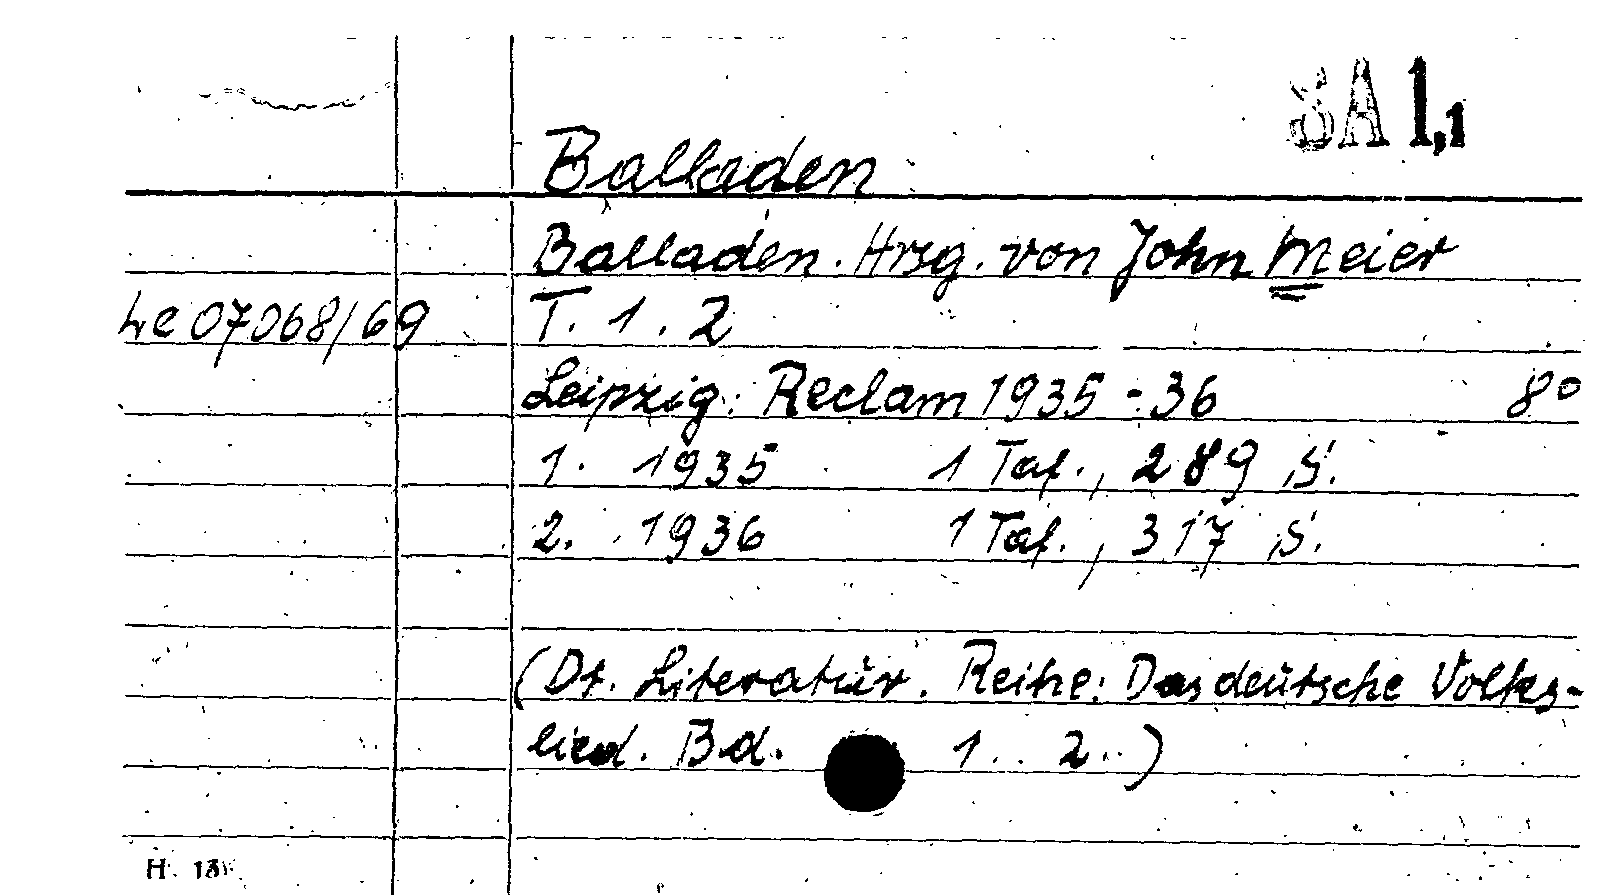 SA 1,1
Balladen
Balladen. Hrsg. von John Meier
Le 07068/69 T. 1. 2
Leipzig: Reclam 1935-36 8°
1. 1935 1 Taf., 289 S.
2. 1936 1 Taf., 317 S.
(Dt. Literatur. Reihe: Das deutsche Volks-
lied. Bd. 1. 2.)
H. 13